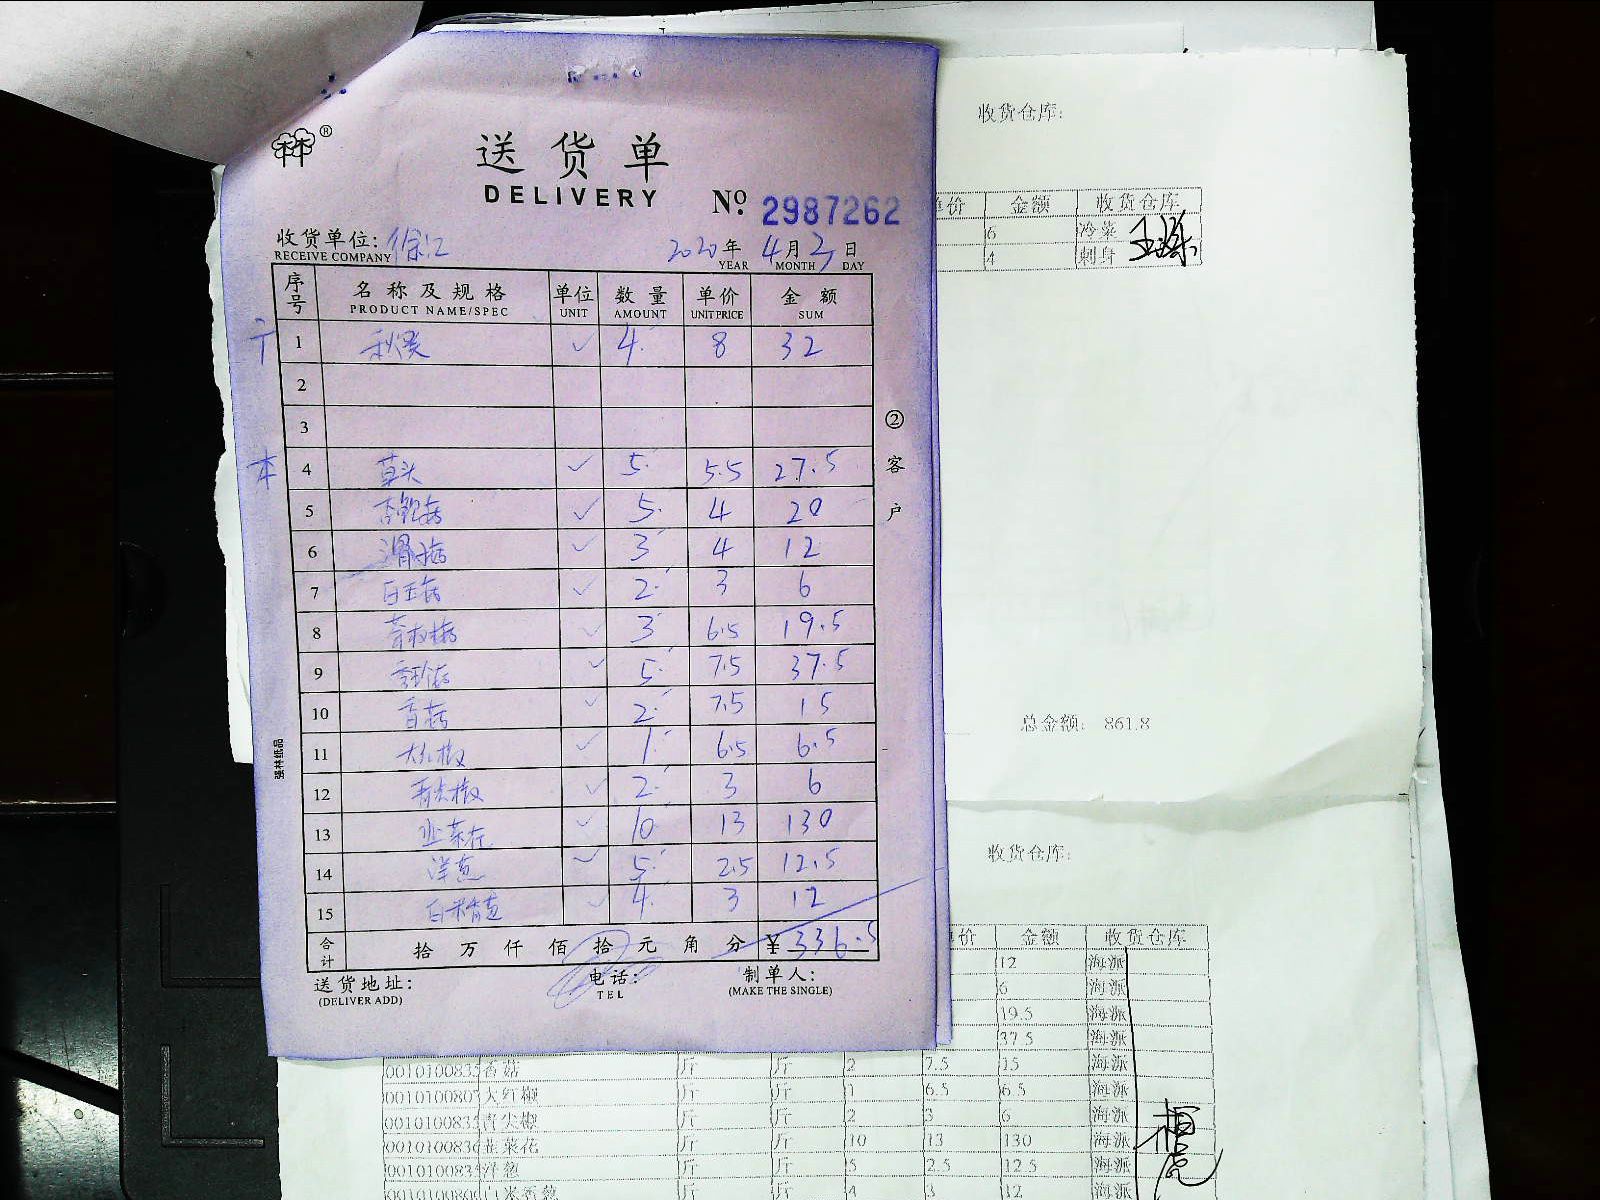 送货单
DELIVERY
No. 2987262
收货单位: 徐汇 2020年4月2日
RECEIVE COMPANY YEAR MONTH DAY
序号 名称及规格 单位 数量 单价 金额
PRODUCT NAME/SPEC UNIT AMOUNT UNIT PRICE SUM
1 秋葵 ✓ 4 8 32
2
3
本 4 草头 ✓ 5 5.5 27.5
5 杏鲍菇 ✓ 5 4 20
6 滑菇 ✓ 3 4 12
7 白玉菇 ✓ 2 3 6
8 茶树菇 ✓ 3 6.5 19.5
9 秀珍菇 ✓ 5 7.5 37.5
10 香菇 ✓ 2 7.5 15
11 大红椒 ✓ 1 6.5 6.5
12 青尖椒 ✓ 2 3 6
13 韭菜花 ✓ 10 13 130
14 洋葱 ✓ 5 2.5 12.5
15 白米香葱 ✓ 4 3 12
合计 拾万仟佰拾元角分 ¥336.5
送货地址: 电话: 制单人:
(DELIVER ADD) TEL (MAKE THE SINGLE)
②客户
强林纸品
收货仓库:
单价 金额 收货仓库
6 冷菜
4 刺身
总金额: 861.8
收货仓库:
单价 金额 收货仓库
12 海派
6 海派
19.5 海派
37.5 海派
香菇 斤 斤 2 7.5 15 海派
大红椒 斤 斤 1 6.5 6.5 海派
青尖椒 斤 斤 2 3 6 海派
韭菜花 斤 斤 10 13 130 海派
洋葱 斤 斤 5 2.5 12.5 海派
白米香葱 斤 斤 4 3 12 海派